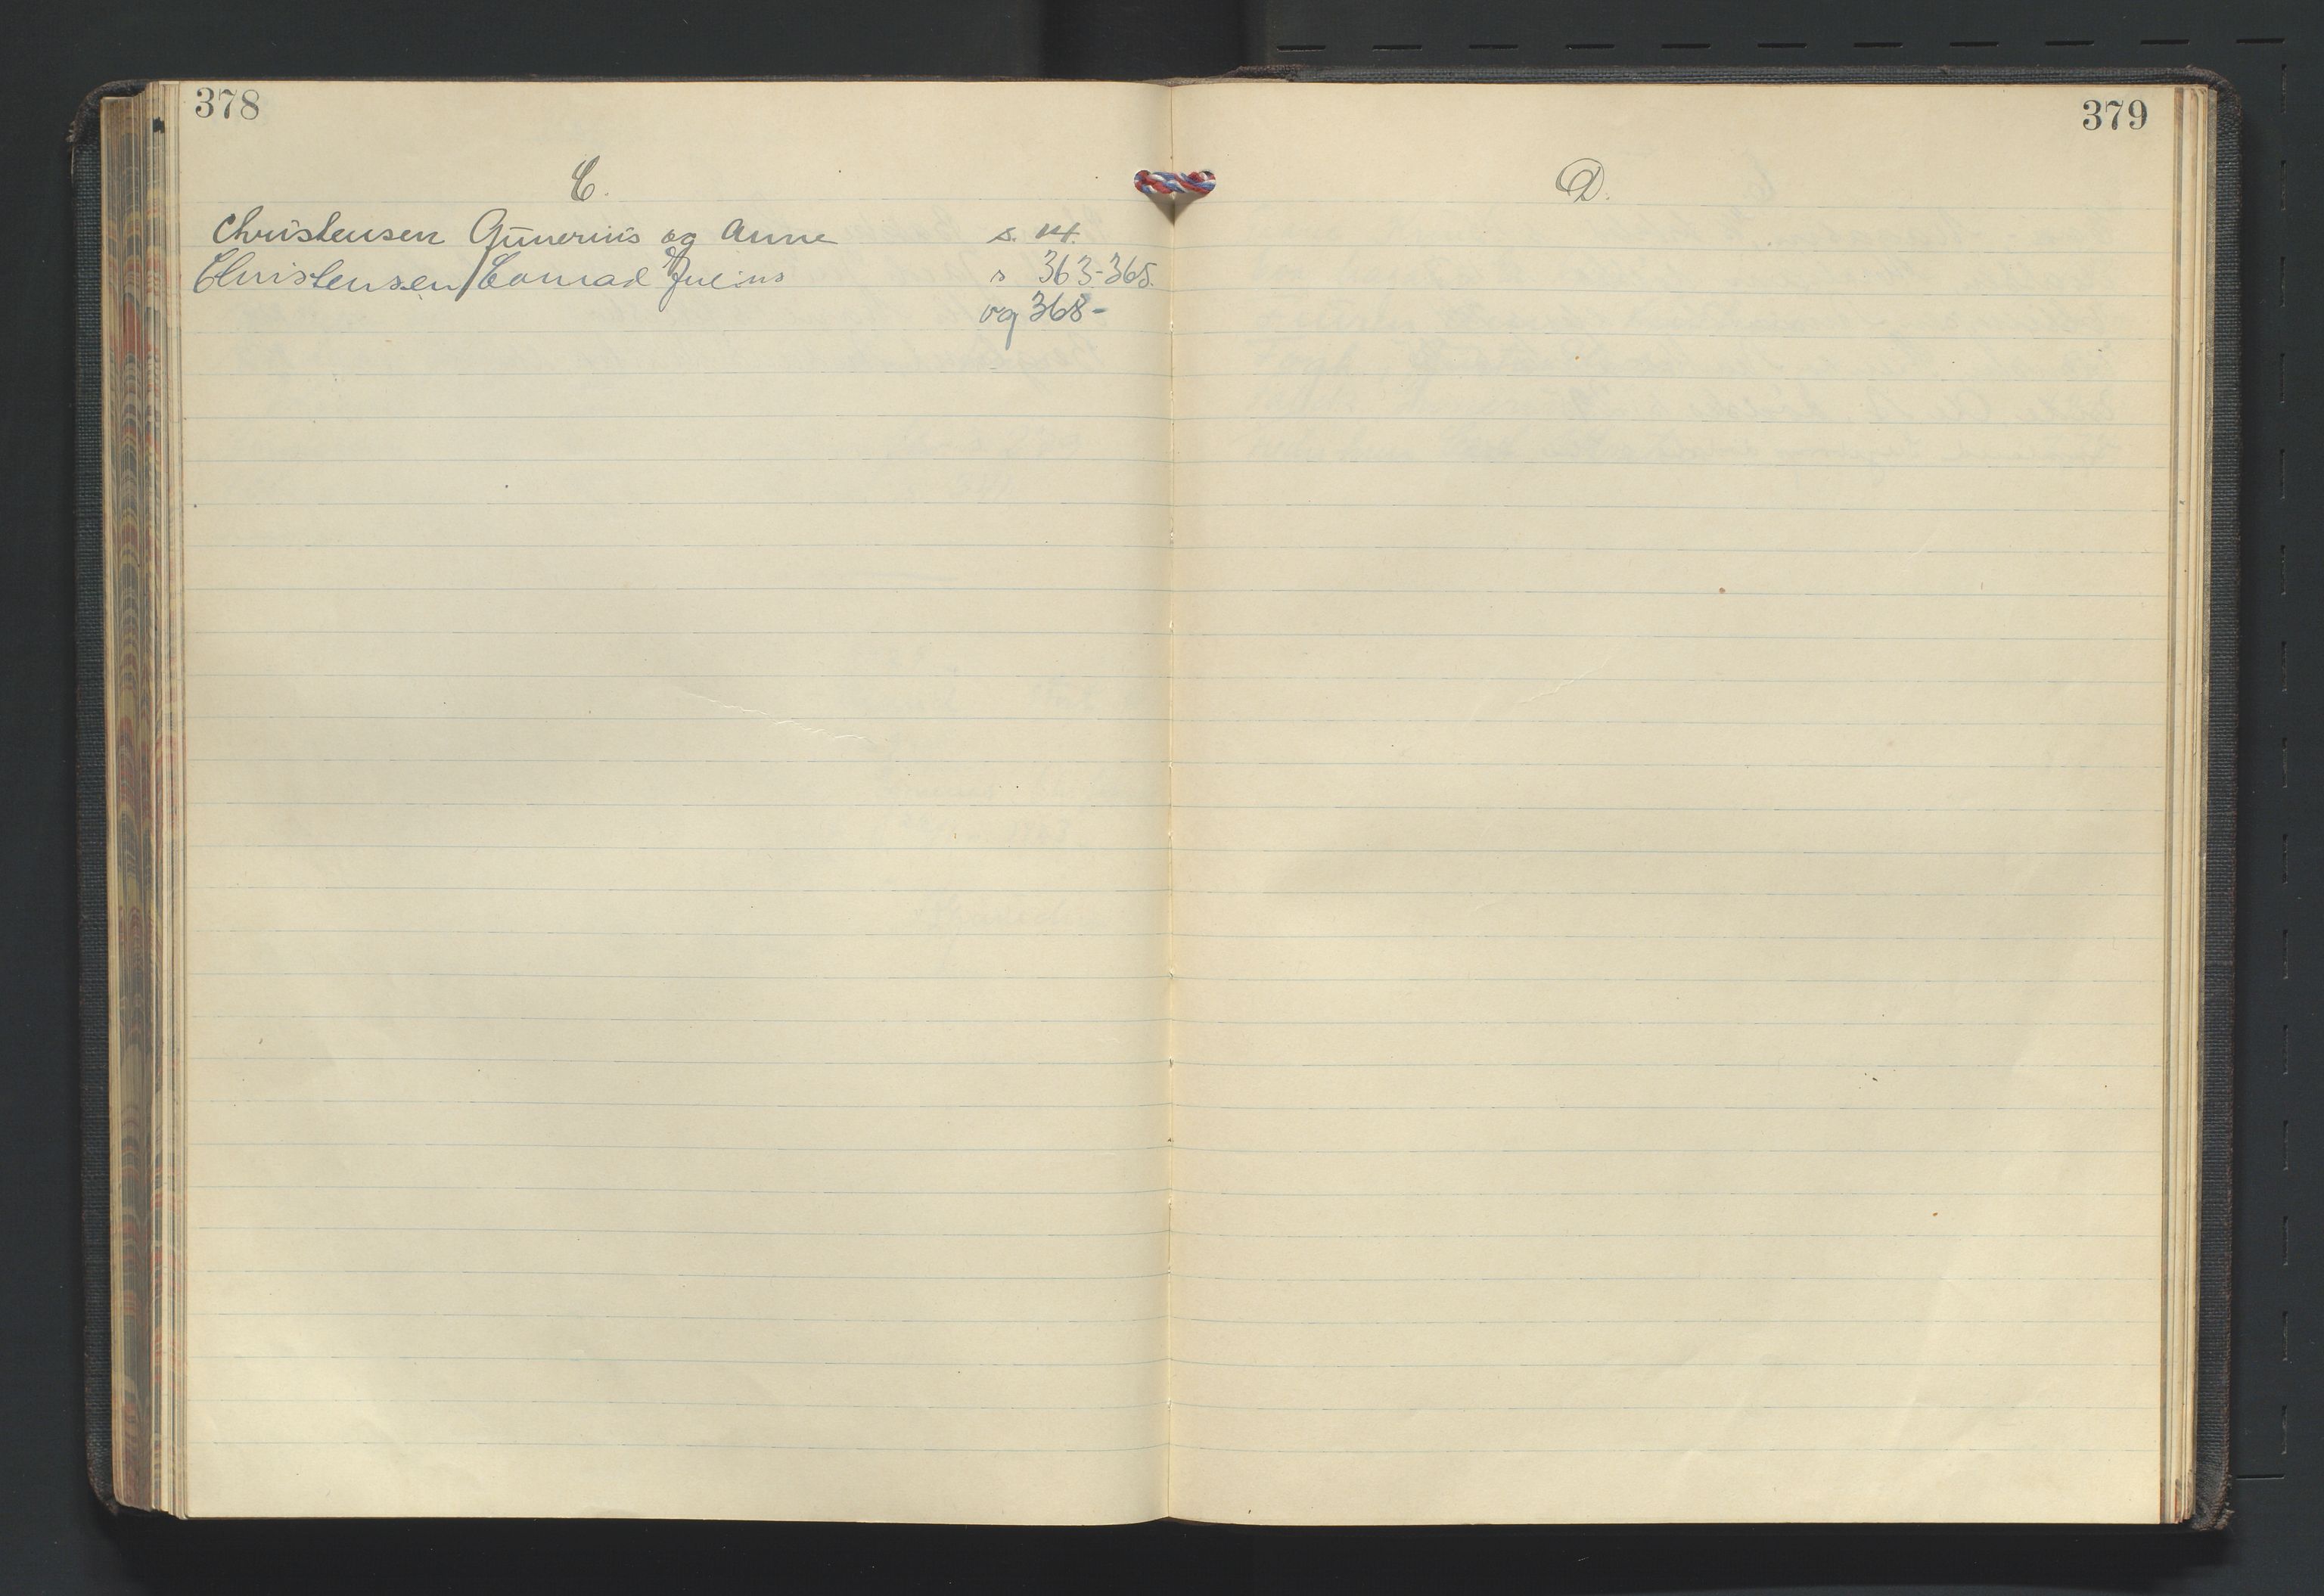 378
C.
Christensen Gunerius og Anne s. 14.
Christensen Conrad Julius s 363-365.
og 368-
379
D.